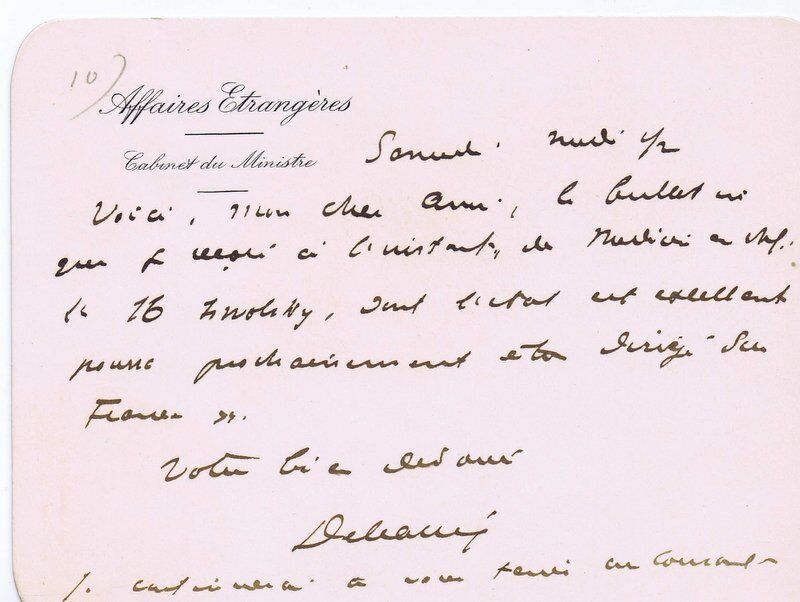 10)
Affaires Etrangères
Cabinet du Ministre
Samedi midi 1/2
Voici, mon cher Ami, le bulletin
que je reçois à l'instant, de Médecin en chef.
le 16 , dont l'état est excellent
pourra prochainement être dirigé sur
France ».
Votre bien dévoué
Delcassé
Je continuerai à vous tenir au courant